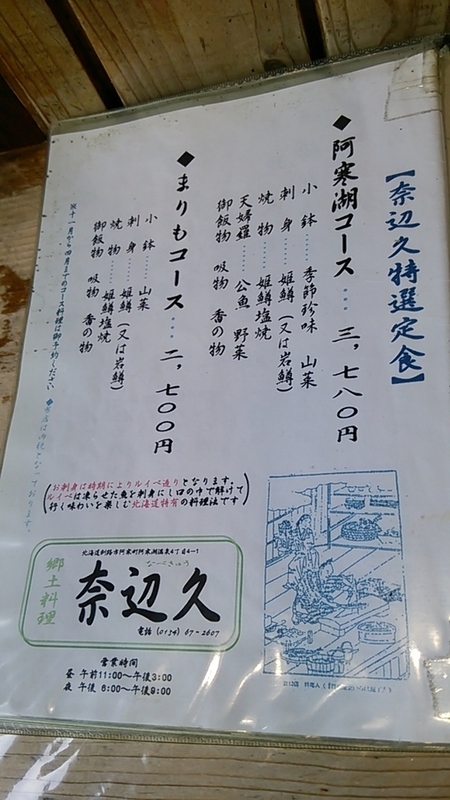 【奈辺久特選定食】
◆阿寒湖コース…三,七八〇円
小鉢……季節珍味 山菜
刺身……姫鱒(又は岩鱒)
焼物……姫鱒塩焼
天婦羅……公魚 野菜
御飯物 吸物 香の物
◆まりもコース…二,七〇〇円
小鉢……山菜
刺身……姫鱒(又は岩鱒)
焼物……姫鱒塩焼
御飯物 吸物 香の物
十一月から四月までのコース料理は御予約ください
お刺身は時期によりルイベ造りとなります。
ルイベは凍らせた魚を刺身にし口の中で解けて
行く味わいを楽しむ北海道特有の料理法です
北海道釧路市阿寒町阿寒湖温泉4丁目4-1
郷土料理
奈辺久
電話 (0154) 67-2607
営業時間
昼 午前11:00〜午後3:00
夜 午後 6:00〜午後9:00